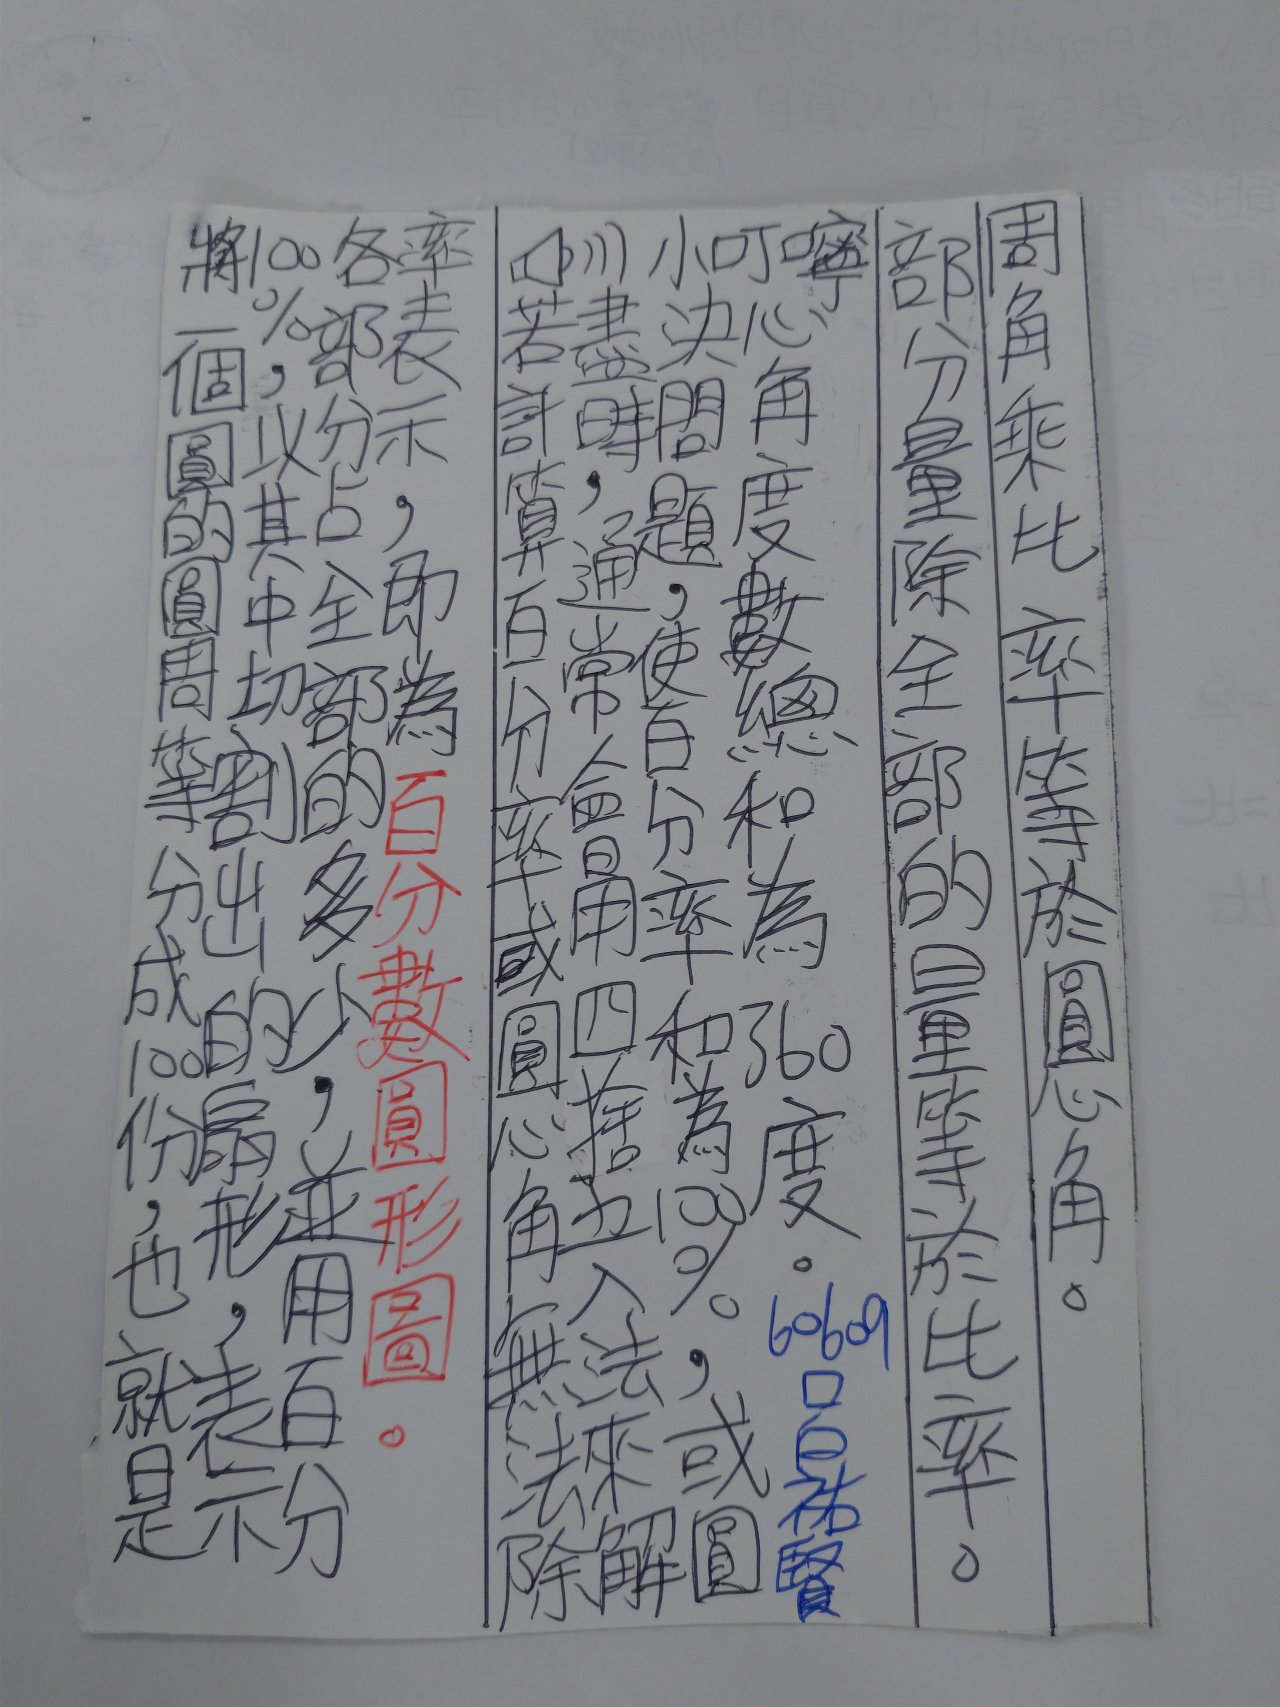 將一個圓的圓周等分成100份,也就是
100%,以其中切割出的扇形,表示
各部分占全部的多少,並用百分
率表示,即為百分數圓形圖。
小叮嚀
若計算百分率或圓心角無法除
盡時,通常會用四捨五入法來解
決問題,使百分率和為100%,或圓
心角度數總和為360度。
60609呂祐賢
部分量除全部的量等於比率。
周角乘比率等於圓心角。